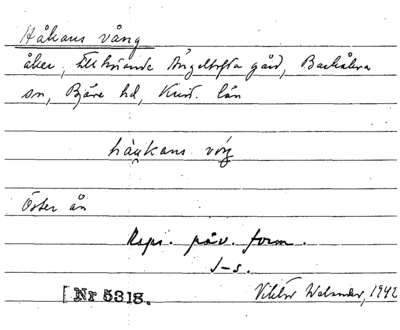 Håkans vång
åker, tillhörande Ängeltofta gård, Barkåkra
sn, Bjäre hd, Krist. län
håukans våŋ
Öster ån
Uspr. påv. form.
J-s.
[Nr 5318.
Viktor Welander, 1942